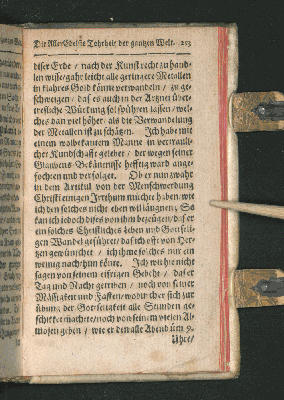 Die Aller-Edelste Tohrheit der gantzen Welt. 253
diser Erde / nach der Kunst recht zu hand-
len wisse / gahr leicht alle geringere Metallen
in klahres Gold könne verwandeln / zu ge-
schweigen / daß es auch in der Artznei über-
treflliche Würkung sol spühren lassen / wel-
ches dan viel höher / als die Verwandelung
der Metallen ist zu schätzen. Ich habe mit
einem wolbekantem Manne in vertrauli-
cher Kundschafft gelebet / der wegen seiner
Glaubens-Bekäntnisse hefftig ward ange-
fochten und verfolget. Ob er nun zwahr
in dem Artikul von der Menschwerdung
Christi einigen Irrthum mochte haben / wie
ich den solches nicht eben wil läugnen; So
kan ich iedoch dises von ihm bezeugen / daß er
ein solches Christliches Leben und Gottseli-
gen Wandel geführet / daß ich oft von Her-
tzen gewünschet / ich ihme solches nur ein
wenig nachthun könte. Ich wil hie nicht
sagen von seinem eifrigen Gebeht / das er
Tag und Nacht getriben / noch von seiner
Mässigkeit und Fasten / wodurch er sich zur
übung der Gottseligkeit alle Stunden ge-
schikter machete / noch von seinem vielen Al-
mosen geben / wie er den alle Abend üm 9.
Uhre /